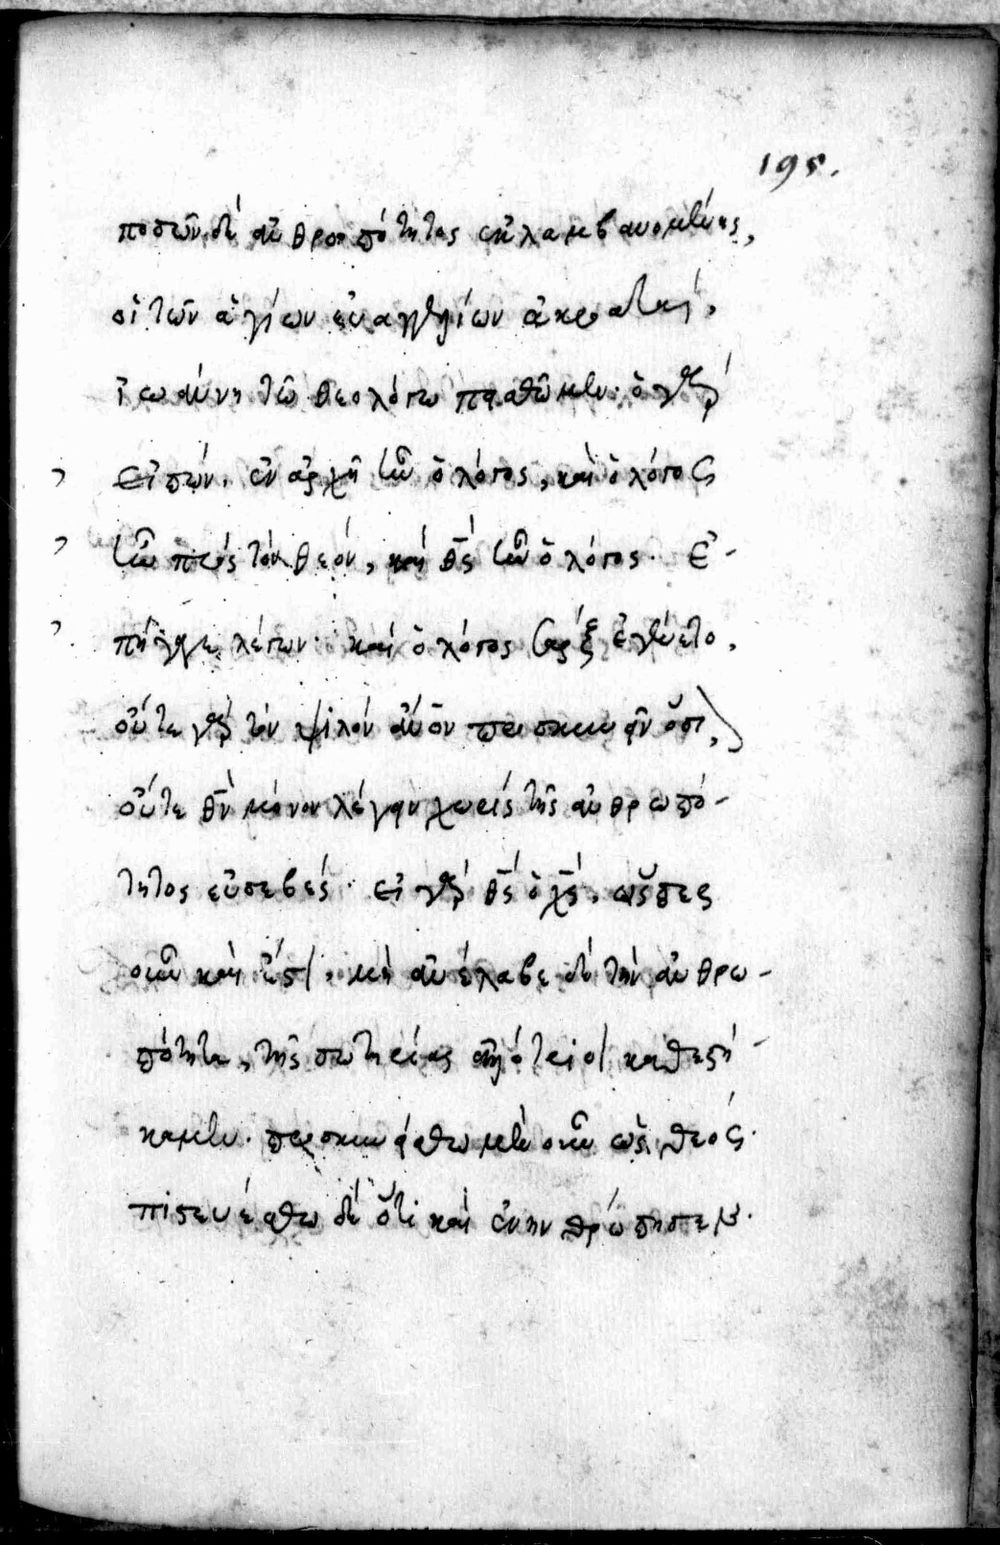 195.
ποδῶν δὲ ἀνθρωπότητος ἐκλαμβανομένης,
οἱ τῶν ἁγίων εὐαγγελίων ἀκροαταί,
ἰωάννη τῶ θεολόγω πειθώμεθα· ὁ γὰρ
εἰπών. ἐν ἀρχῆ ἦν ὁ λόγος, καὶ ὁ λόγος
ἦν πρὸς τὸν θεόν, καὶ θς ἦν ὁ λόγος. ἐ-
πήγαγε λέγων· καὶ ὁ λόγος σὰρξ ἐγένετο.
οὔτε γὰρ τὸν ψιλὸν ἄνον προσκυνεῖν ὅσιον,
οὔτε θν μόνον λέγειν χωρὶς τῆς ἀνθρωπό-
τητος εὐσεβές. εἰ γὰρ θς ὁ χς, ὥσπερ
οὖν καὶ ἔστι, μὴ ἀνέλαβε δὲ τὴν ἀνθρω-
πότητα, τῆς σωτηρίας ἀλλότριοι καθεστή-
καμεν. προσκυνείσθω μὲν οὖν ὡς θεός.
πιστευέσθω δὲ ὅτι καὶ ἐνηνθρώπησεν.